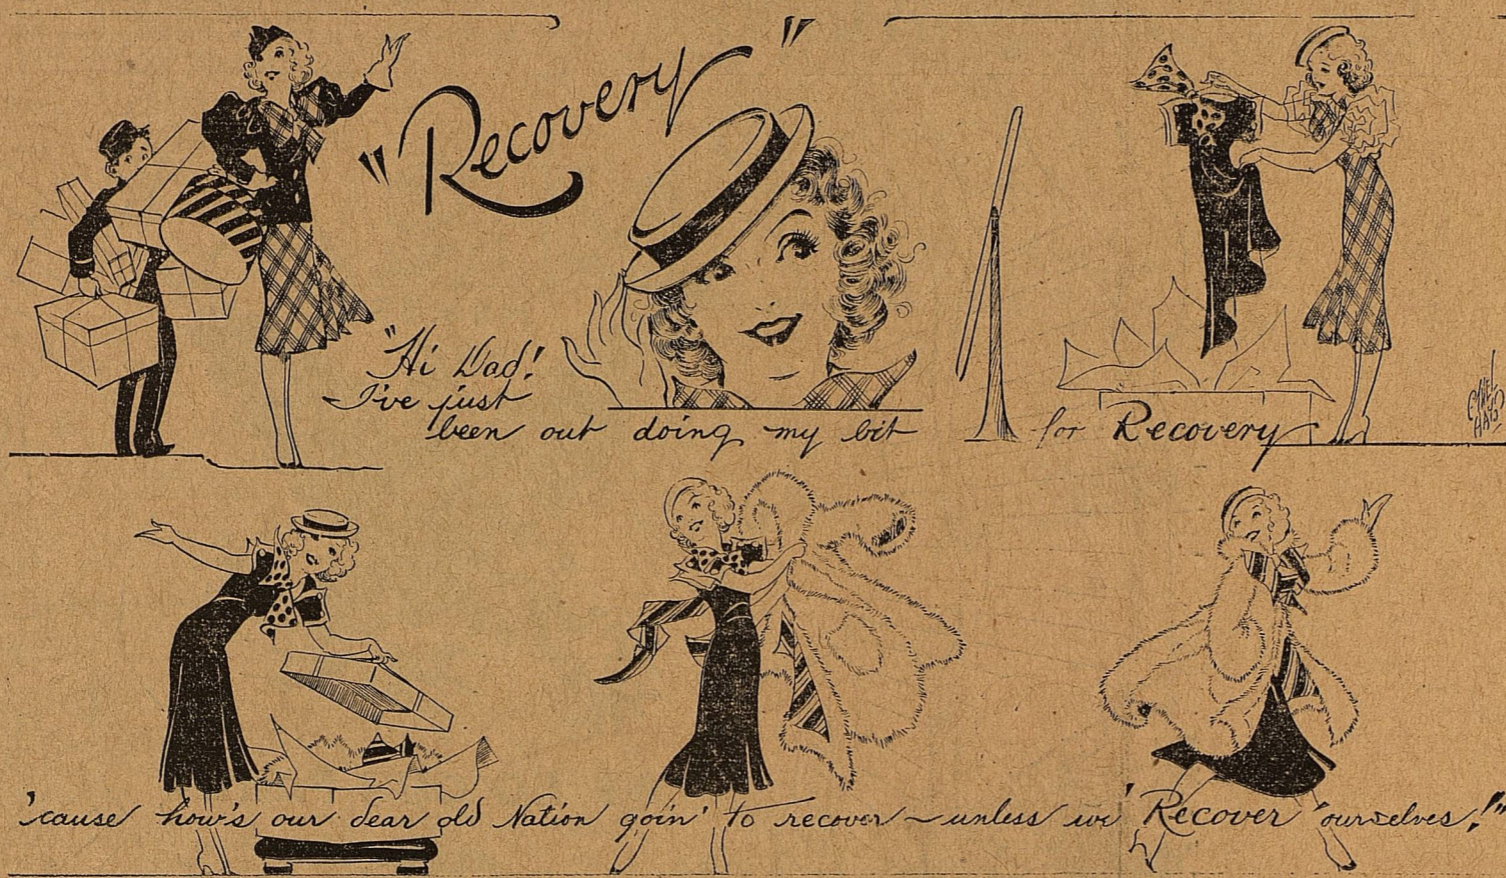 "Recovery"
"Hi Dad!
I've just
been out doing my bit for Recovery
'cause how's our dear old Nation goin' to recover - unless we 'Recover' ourselves!"